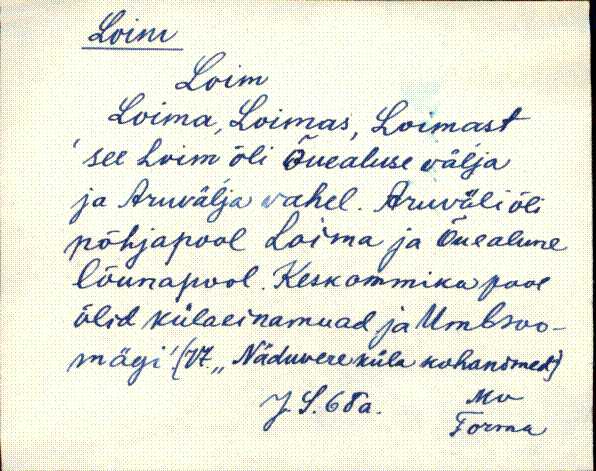 Loim
Loim
Loima, Loimas, Loimast
'see Loim õli Õuealuse välja
ja Aruvälja vahel. Aruväli õli
põhjapool Loima ja Õuealune
lõunapool. Keskommiku pool
õlid külaeinamuad ja Umbsoo-
mägi'. (Vt. „Näduvere küla kohanimed)
J. S. 68a. Mv
Torma